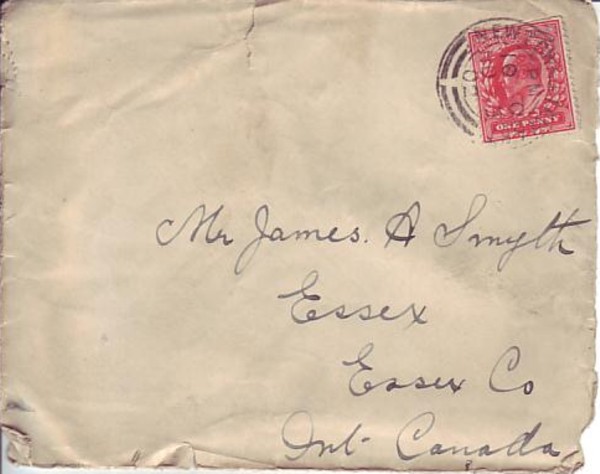 NEW
PM
ONE PENNY
Mr James. A Smyth
Essex
Essex Co
Ont- Canada,